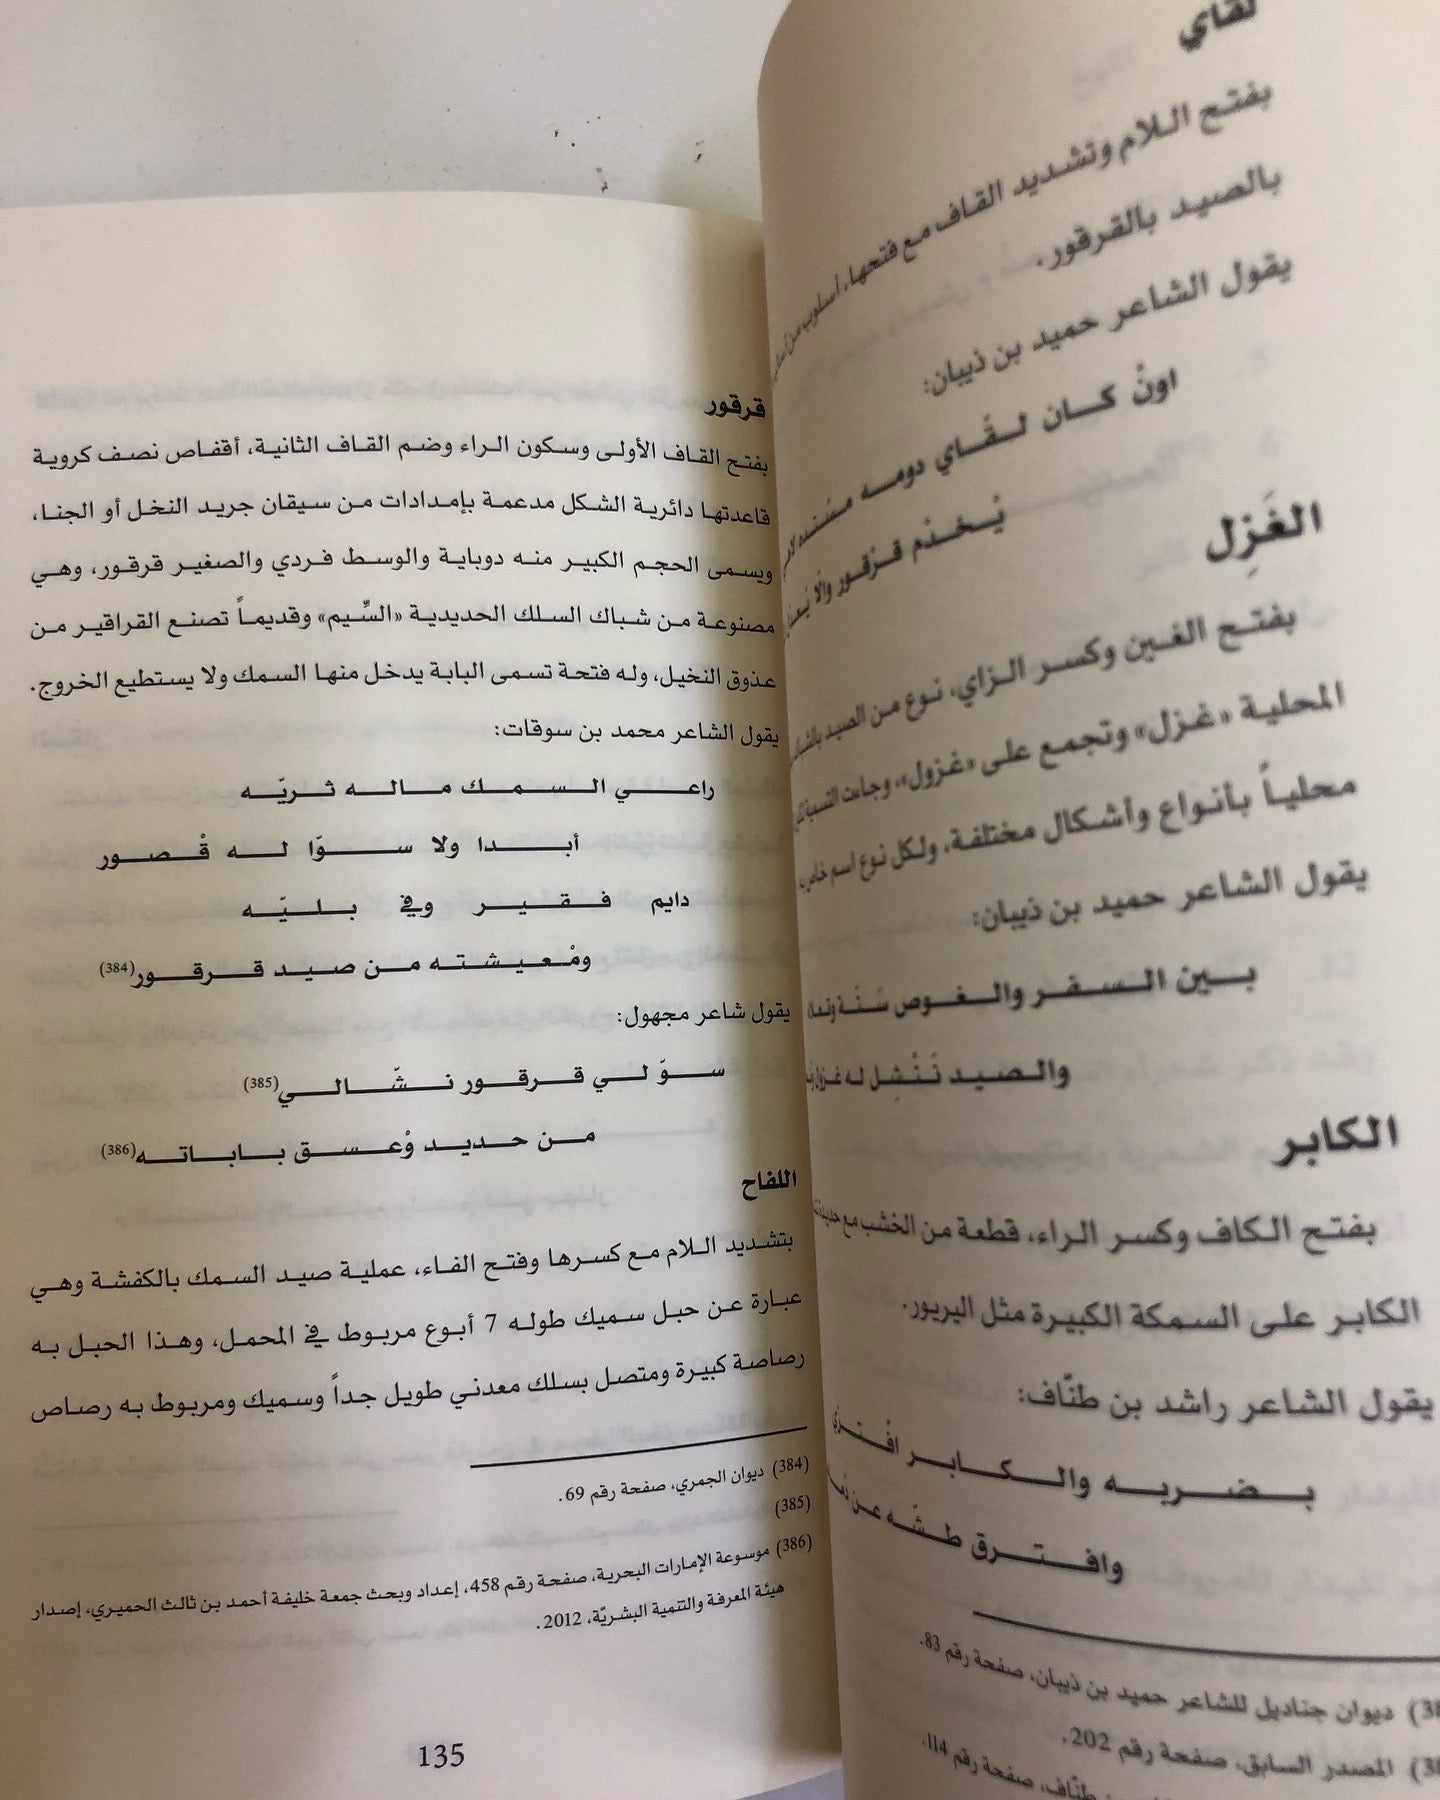 لقاي
بفتح اللام وتشديد القاف مع فتحها، أسلوب من
بالصيد بالقرقور.
يقول الشاعر حميد بن ذيبان:
اونْ كان لقّاي دومه مسْنده
يْخدْم قرْقور والّا
الغَزِل
بفتح الغين وكسر الزاي، نوع من الصيد
المحلية «غزل» وتجمع على «غزول»، وجاءت التسمية
محلياً بأنواع وأشكال مختلفة، ولكل نوع اسم خاص به
يقول الشاعر حميد بن ذيبان:
بين السفر والغوص سَنّة
والصيد نَنْشِل له غزول
الكابر
بفتح الكاف وكسر الراء، قطعة من الخشب مع حديدة
الكابر على السمكة الكبيرة مثل اليريور.
يقول الشاعر راشد بن طنّاف:
بضربه والكابر
وافترق طشّه عن
ديوان جناديل للشاعر حميد بن ذيبان، صفحة رقم 83.
المصدر السابق، صفحة رقم 202.
طنّاف، صفحة رقم 114.
قرقور
بفتح القاف الأولى وسكون الراء وضم القاف الثانية، أقفاص نصف كروية
قاعدتها دائرية الشكل مدعمة بإمدادات من سيقان جريد النخل أو الجنا،
ويسمى الحجم الكبير منه دوباية والوسط فردي والصغير قرقور، وهي
مصنوعة من شباك السلك الحديدية «السِّيم» وقديماً تصنع القراقير من
عذوق النخيل، وله فتحة تسمى البابة يدخل منها السمك ولا يستطيع الخروج.
يقول الشاعر محمد بن سوقات:
راعي السمك ماله ثريّه
أبدا ولا سوّا له قْصور
دايم فقير وفي بليّه
ومْعيشته من صيد قرقور(384)
يقول شاعر مجهول:
سوّ لي قرقور نشّالي(385)
من حديد وْعسق باباته(386)
اللفاح
بتشديد اللام مع كسرها وفتح الفاء، عملية صيد السمك بالكفشة وهي
عبارة عن حبل سميك طوله 7 أبوع مربوط في المحمل، وهذا الحبل به
رصاصة كبيرة ومتصل بسلك معدني طويل جداً وسميك ومربوط به رصاص
(384) ديوان الجمري، صفحة رقم 69.
(385)
(386) موسوعة الإمارات البحرية، صفحة رقم 458، إعداد وبحث جمعة خليفة أحمد بن ثالث الحميري، إصدار
هيئة المعرفة والتنمية البشريّة، 2012.
135